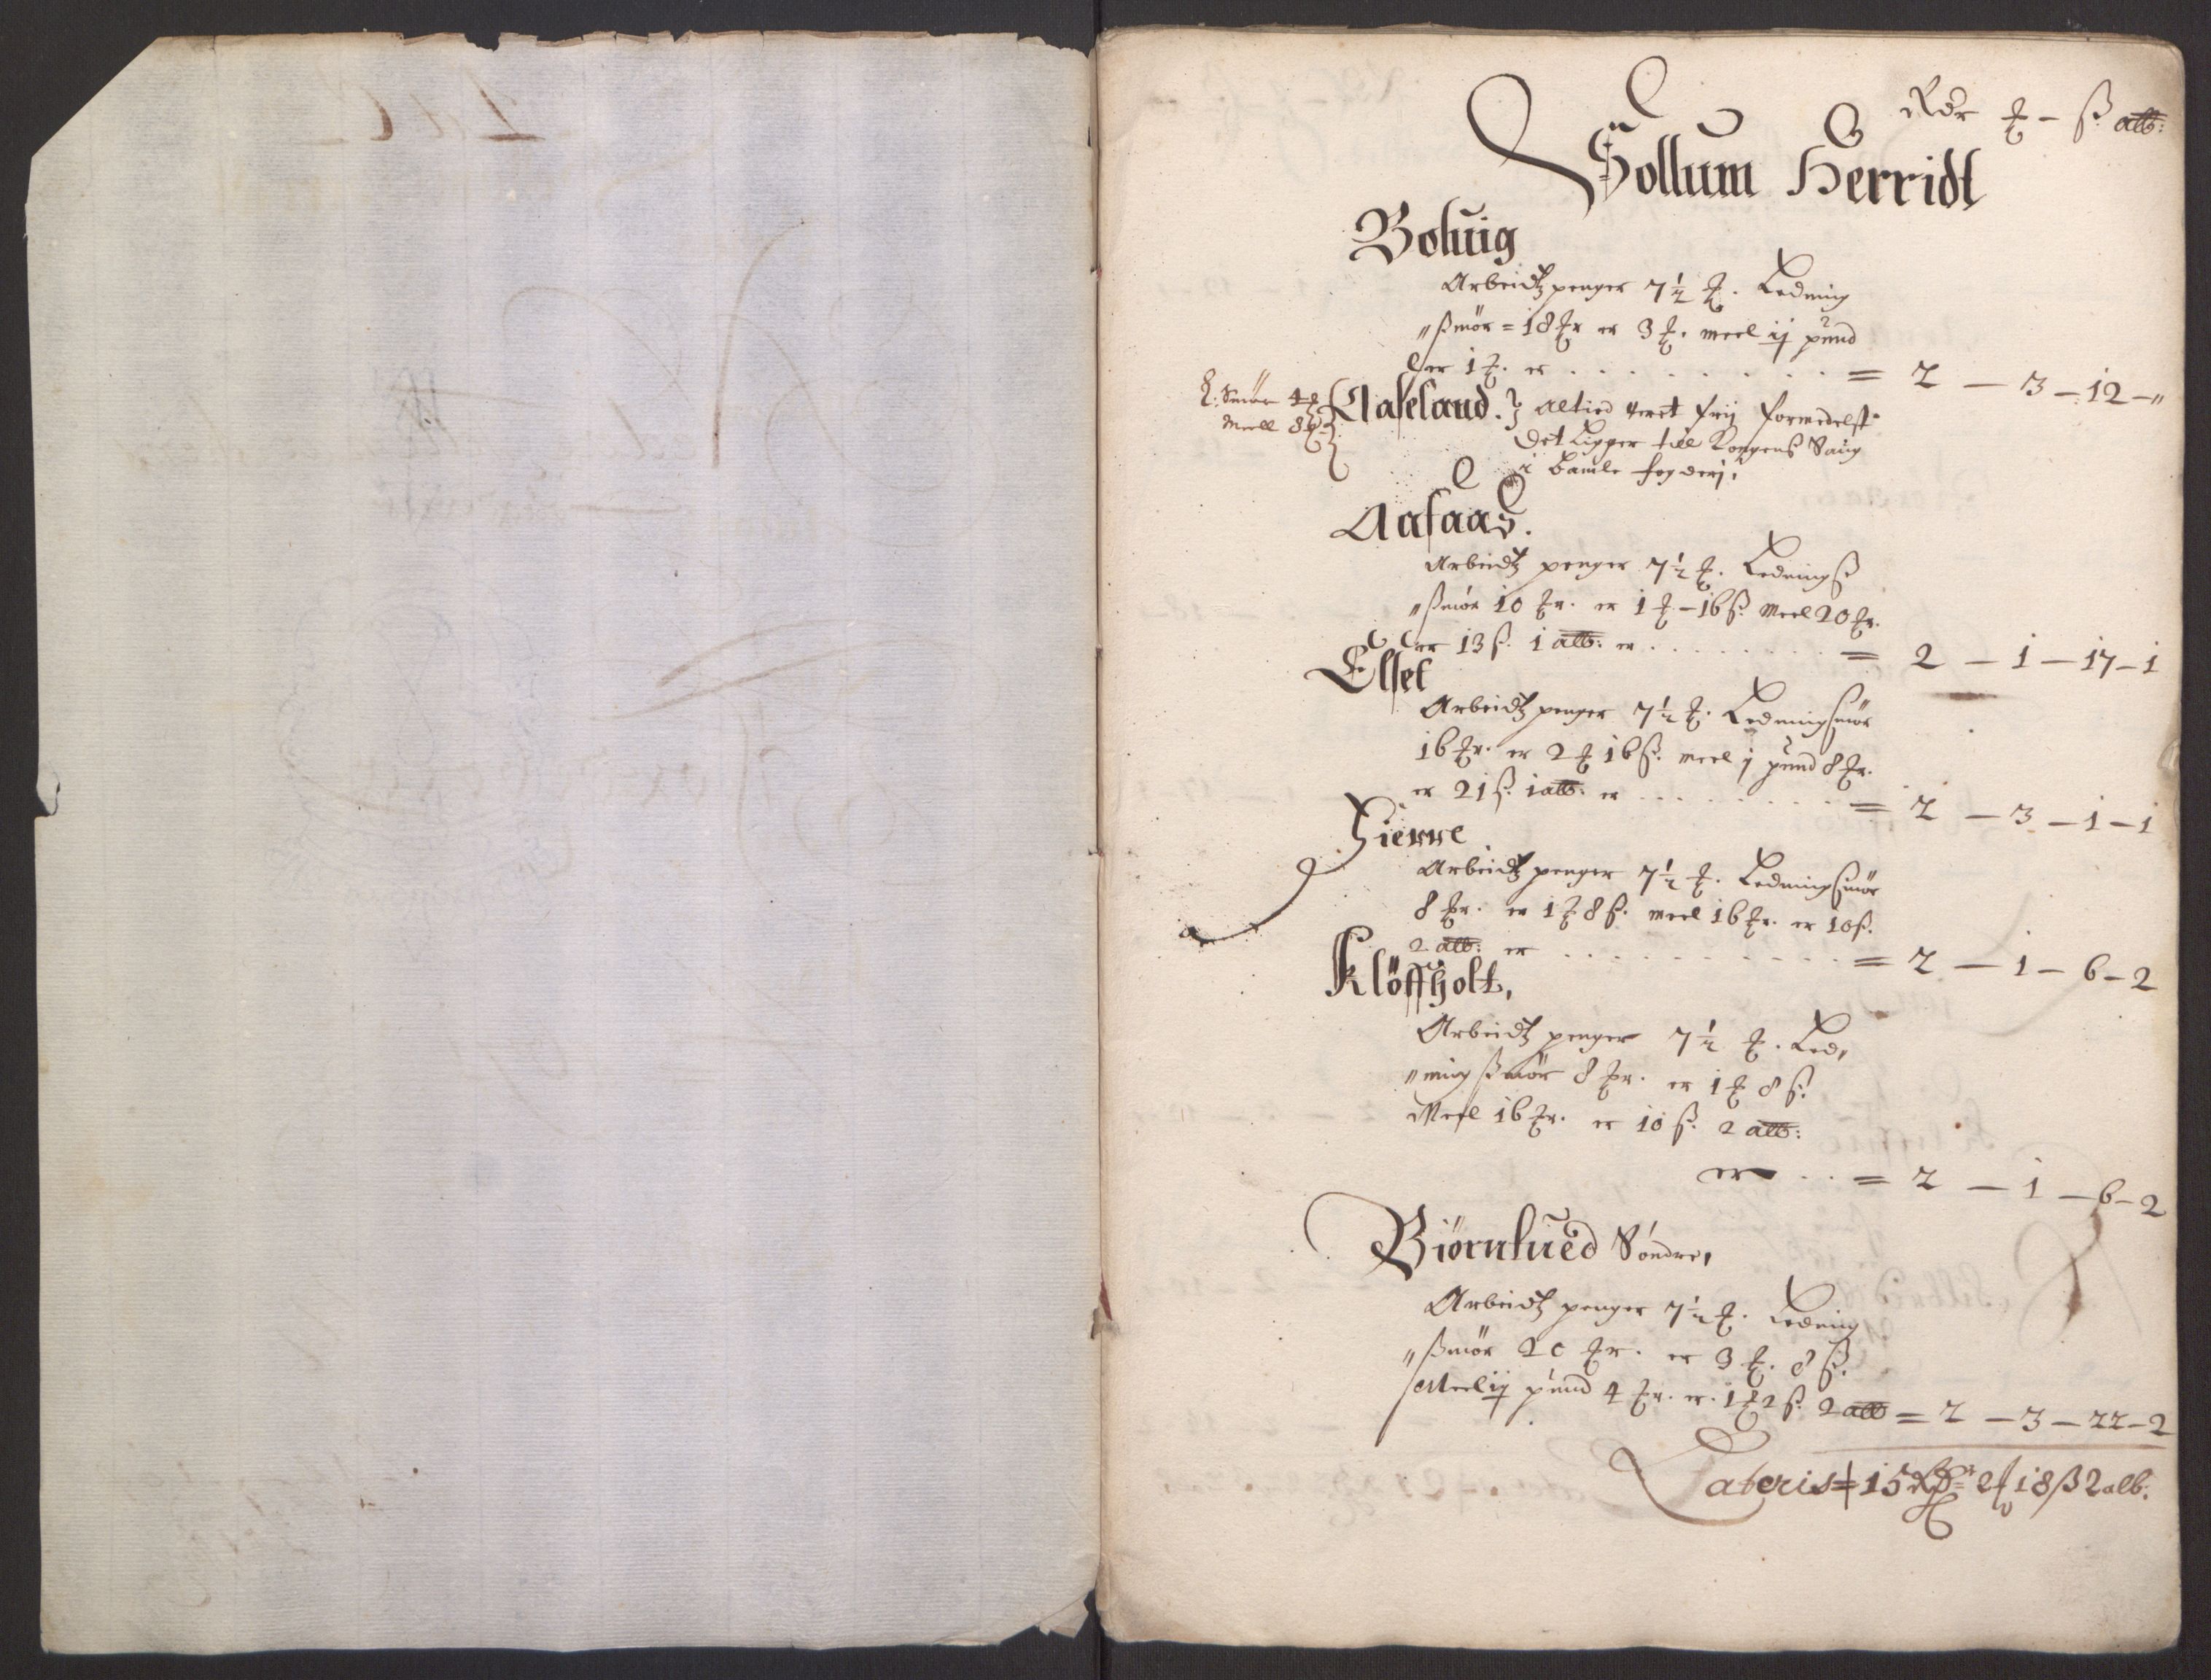 Rdr ₻ – ß alb:
Sollum Herridt
Boluig
Arbeidtzpenger 7½ ₻. Leding
"smör = 18 ₻r er 3 ₻. meel ij pund
er 1 ₻. er . . . . . . . . . = 2 – 3 – 12 – "
Smör 4 ₻
Meell 8 ₻
Aaseland. } Altied veret frij formedelst
Det Ligger till Kongens Saug
i Bamle fogderj,
Aasaas.
Arbeidtz penger 7½ ₻. Ledingß
"smör 10 ₻r. er 1 ₻ – 16 ß. Meel 20 ₻r.
er 13 ß. 1 alb: er . . . . . . . . = 2 – 1 – 17 – 1
Elset
Arbeidtz penger 7½ ₻. Ledingsmör
16 ₻r. er 2 ₻ 16 ß. meel j pund 8 ₻r.
er 21 ß. 1 alb: er . . . . . . . . = 2 – 3 – 1 – 1
Fierre
Arbeidtz penger 7½ ₻. Ledingsmör
8 ₻r. er 1 ₻ 8 ß. meel 16 ₻r. er 10 ß.
2 alb: er . . . . . . . . . . = 2 – 1 – 6 – 2
Klöffholt,
Arbeidtz penger 7½ ₻. Led,
"ingsmör 8 ₻r. er 1 ₻ 8 ß.
Meel 16 ₻r. er 10 ß. 2 alb:
er . . = 2 – 1 – 6 – 2
Biörntued Söndre,
Arbeidtz penger 7½ ₻. Leding
"smör 20 ₻r. er 3 ₻. 8 ß.
Meel ij pund 4 ₻r. er. 1 ₻ 2 ß. 2 alb = 2 – 3 – 22 – 2
Lateris = 15 Rdr 2 ₻ 18 ß 2 alb: